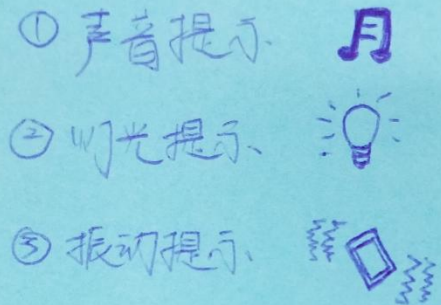 ① 声音提示
② 灯光提示
③ 振动提示